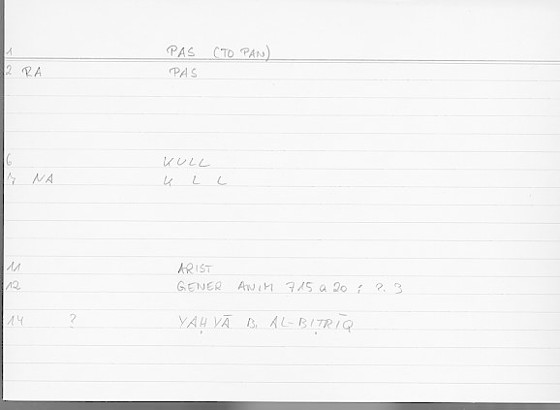 1 PAS (TO PAN)
2 RA PAS
6 KULL
7 NA K L L
11 ARIST
12 GENER ANIM 715 a 20 ; P. 3
14 ? YAḤYĀ B. AL-BIṬRĪQ